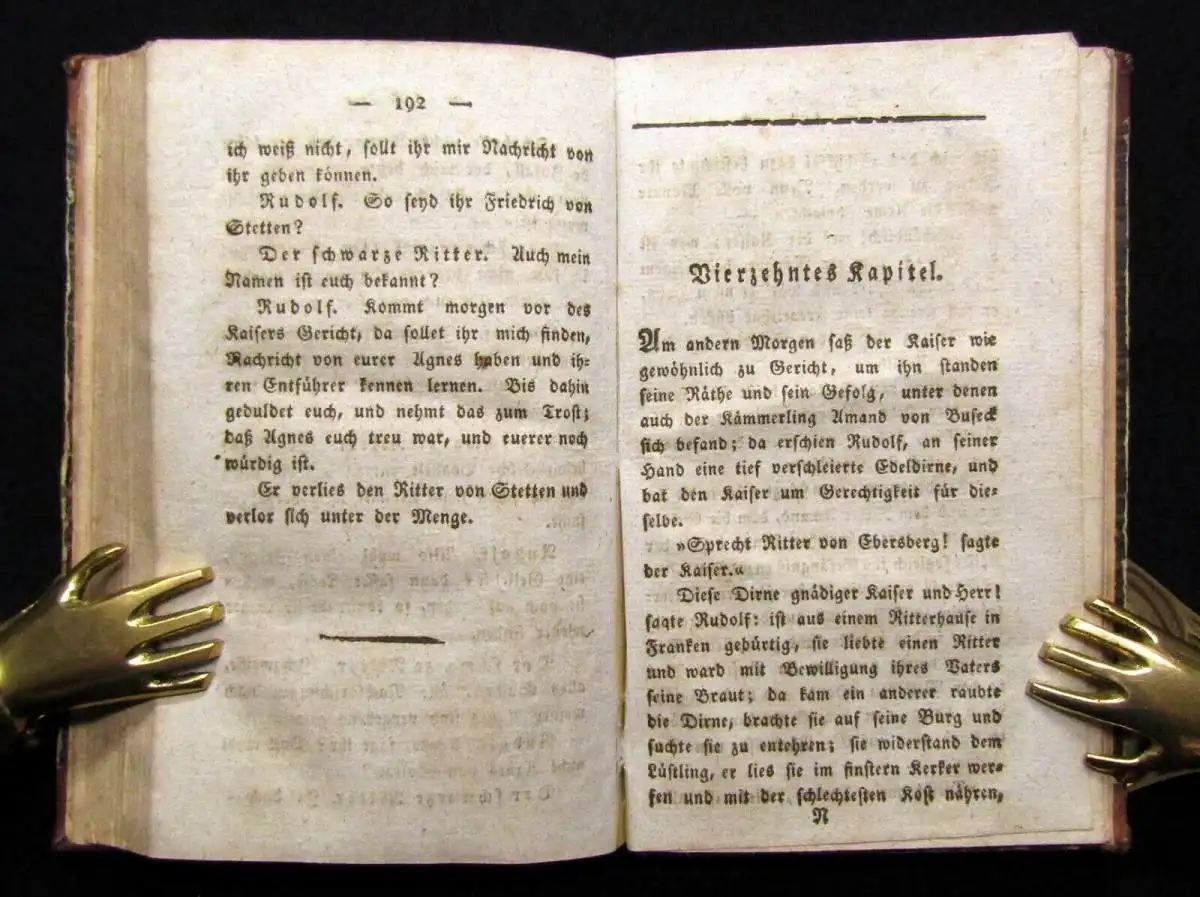 — 192 —
ich weiß nicht, sollt ihr mir Nachricht von
ihr geben können.
Rudolf. So seyd ihr Friedrich von
Stetten?
Der schwarze Ritter. Auch mein
Namen ist euch bekannt?
Rudolf. Kommt morgen vor des
Kaisers Gericht, da sollet ihr mich finden,
Nachricht von eurer Agnes haben und ih-
ren Entführer kennen lernen. Bis dahin
geduldet euch, und nehmt das zum Trost;
daß Agnes euch treu war, und euerer noch
würdig ist.
Er verlies den Ritter von Stetten und
verlor sich unter der Menge.
Vierzehntes Kapitel.
Am andern Morgen saß der Kaiser wie
gewöhnlich zu Gericht, um ihn standen
seine Räthe und sein Gefolg, unter denen
auch der Kämmerling Amand von Buseck
sich befand; da erschien Rudolf, an seiner
Hand eine tief verschleierte Edeldirne, und
bat den Kaiser um Gerechtigkeit für die-
selbe.
»Sprecht Ritter von Ebersberg! sagte
der Kaiser.«
Diese Dirne gnädiger Kaiser und Herr!
sagte Rudolf: ist aus einem Ritterhause in
Franken gebürtig, sie liebte einen Ritter
und ward mit Bewilligung ihres Vaters
seine Braut; da kam ein anderer raubte
die Dirne, brachte sie auf seine Burg und
suchte sie zu entehren; sie widerstand dem
Lüstling, er lies sie im finstern Kerker wer-
fen und mit der schlechtesten Kost nähren,
N